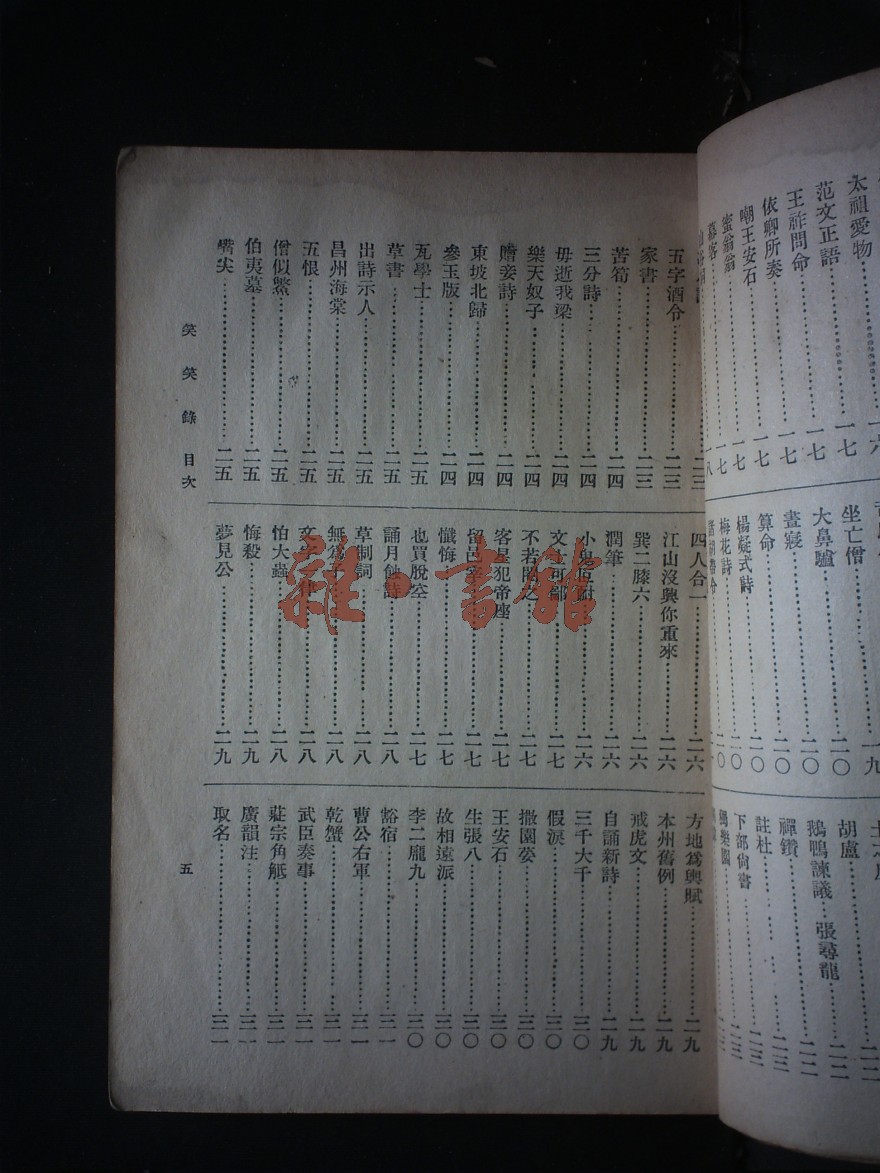 太祖愛物……一六
范文正語……一七
王祚問命……一七
依卿所奏……一七
嘲王安石……一七
蜜翁翁……一七
幕客……一八
坐亡僧……二〇
大鼻驢……二〇
晝寢……二〇
算命……二〇
楊凝式詩……二〇
梅花詩……二〇
胡盧
鵝鴨諫議 張尋龍
禪鑽
註杜
下部尙書
獨樂園
五字酒令……二三
家書……二三
苦筍……二四
三分詩……二四
毋逝我梁……二四
樂天奴子……二四
贈妾詩……二四
東坡北歸……二四
參玉版……二四
瓦學士……二五
草書……二五
出詩示人……二五
昌州海棠……二五
五恨……二五
僧似鱉……二五
伯夷墓……二五
嘴尖……二五
四人合一……二六
江山沒興你重來……二六
巽二滕六……二六
潤筆……二六
二六
二七
不若閉之……二七
客星犯帝座……二七
留邑宰……二七
懺悔……二七
也買脫空……二七
誦月蝕詩……二八
草制詞……二八
無爲子……二八
二八
怕大蟲……二八
悔殺……二九
夢見公……二九
方地爲輿賦……二九
本州舊例……二九
戒虎文……二九
自誦新詩……二九
三千大千……三〇
假淚……三〇
撒園荽……三〇
王安石……三〇
生張八……三〇
故相遠派……三〇
李二龐九……三〇
豁宿……三一
曹公右軍……三一
乾蟹……三一
武臣奏事……三一
莊宗角觝……三一
廣韻注……三一
取名……三一
笑笑錄 目次
五
雜·書館